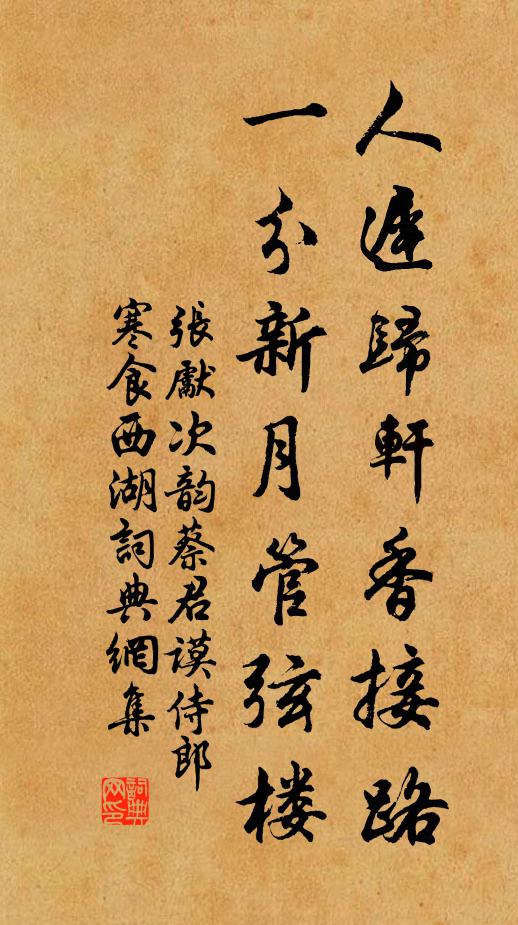 人遲歸軒香接路
一分新月管弦楼
張獻次韵蔡君謨侍郎
寒食西湖詞典網集
詞典網印